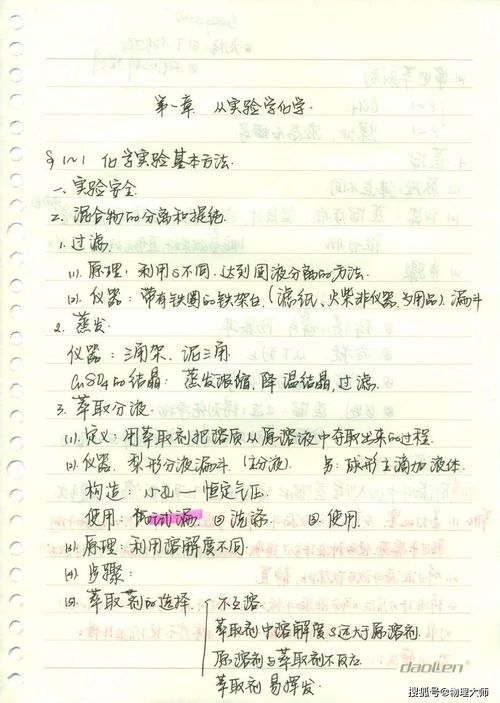 第一章 从实验学化学.
§1~1 化学实验基本方法.
一、实验安全
二、混合物的分离和提纯.
1. 过滤.
(1). 原理: 利用S不同. 达到固液分离的方法.
(2). 仪器: 带有铁圈的铁架台. (滤纸、火柴非仪器, 为用品). 漏斗
2. 蒸发.
仪器: 三角架、泥三角.
CuSO4的结晶: 蒸发浓缩, 降温结晶, 过滤.
3. 萃取分液.
(1). 定义: 用萃取剂把溶质从原溶液中夺取出来的过程.
(2). 仪器. 梨形分液漏斗. (主分液). 球形主滴加液体.
构造: 小孔 — 恒定气压
使用: 试漏. ②洗涤 ③. 使用.
(3) 原理: 利用溶解度不同.
(4) 步骤:
(5). 萃取剂的选择.
不互溶.
萃取剂中溶解度S远大于原溶剂.
原溶剂与萃取剂不反应.
萃取剂易挥发.
daoLen
搜狐号@物理大师